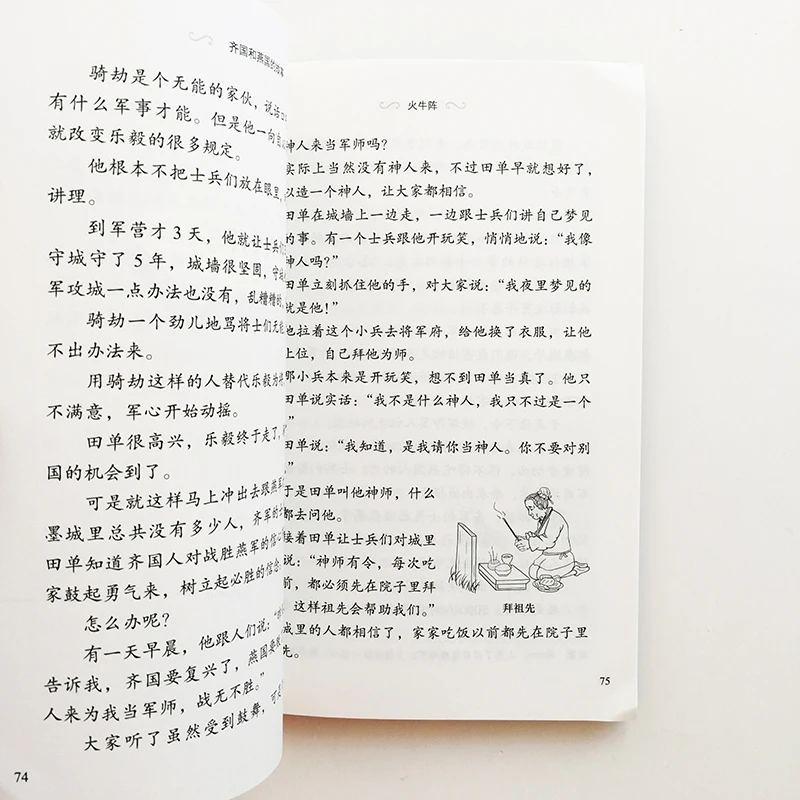 齐国和燕国的故事
骑劫是个无能的家伙，说话
有什么军事才能。但是他一向
就改变乐毅的很多规定。
他根本不把士兵们放在眼里，
讲理。
到军营才3天，他就让士兵们
守城守了5年，城墙很坚固，守城
军攻城一点办法也没有，乱糟糟的，
骑劫一个劲儿地骂将士们无能
不出办法来。
用骑劫这样的人替代乐毅为
不满意，军心开始动摇。
田单很高兴，乐毅终于走了，
国的机会到了。
可是就这样马上冲出去跟燕军
墨城里总共没有多少人，齐军的
田单知道齐国人对战胜燕军的信心
家鼓起勇气来，树立起必胜的信念
怎么办呢？
有一天早晨，他跟人们说：“
告诉我，齐国要复兴了，燕国要
人来为我当军师，战无不胜。”
大家听了虽然受到鼓舞，可
74
火牛阵
神人来当军师吗？
实际上当然没有神人来，不过田单早就想好了，
以造一个神人，让大家都相信。
田单在城墙上一边走，一边跟士兵们讲自己梦见
的事。有一个士兵跟他开玩笑，悄悄地说：“我像
神人吗？”
田单立刻抓住他的手，对大家说：“我夜里梦见的
就是他！”
他拉着这个小兵去将军府，给他换了衣服，让他
上位，自己拜他为师。
那小兵本来是开玩笑，想不到田单当真了。他只
田单说实话：“我不是什么神人，我只不过是一个
”
田单说：“我知道，是我请你当神人。你不要对别
”
于是田单叫他神师，什么
都去问他。
接着田单让士兵们对城里
说：“神师有令，每次吃
前，都必须先在院子里拜
，这样祖先会帮助我们。”
拜祖先
城里的人都相信了，家家吃饭以前都先在院子里
先。
75